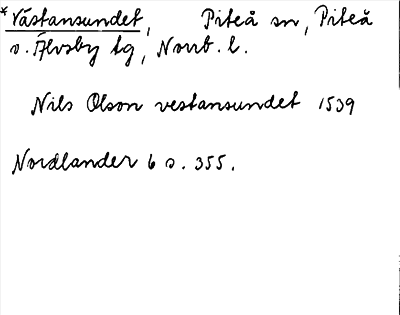 *Västansundet, Piteå sn, Piteå
o. Älvsby tg, Norrb. l.
Nils Olson vestansundet 1539
Nordlander 6 s. 355.